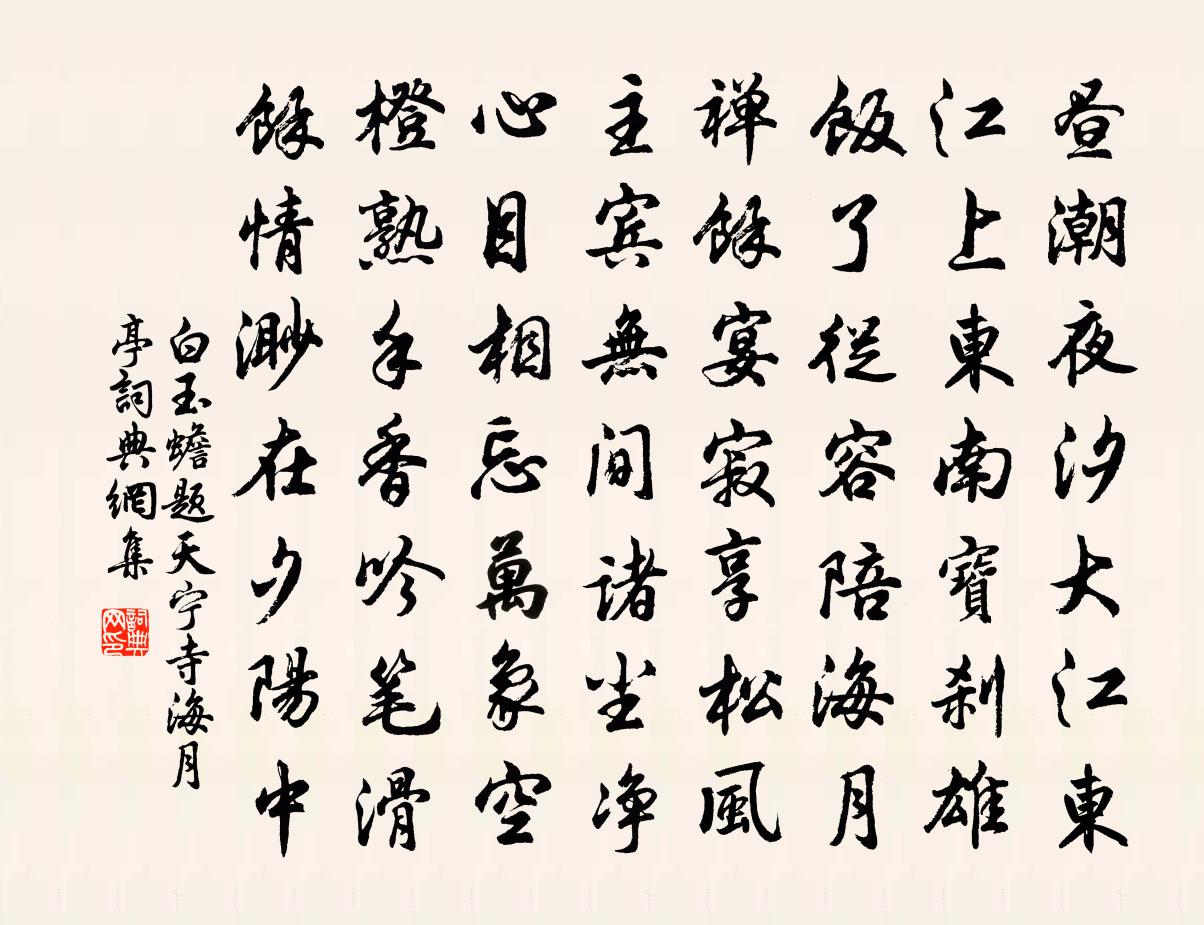 昼潮夜汐大江東
江上東南寶刹雄
飯了從容陪海月
禅餘宴寂享松風
主宾無间諸尘净
心目相忘萬象空
橙熟手香吟笔滑
餘情渺在夕陽中
白玉蟾题天宁寺海月
亭詞典網集
詞典
网印